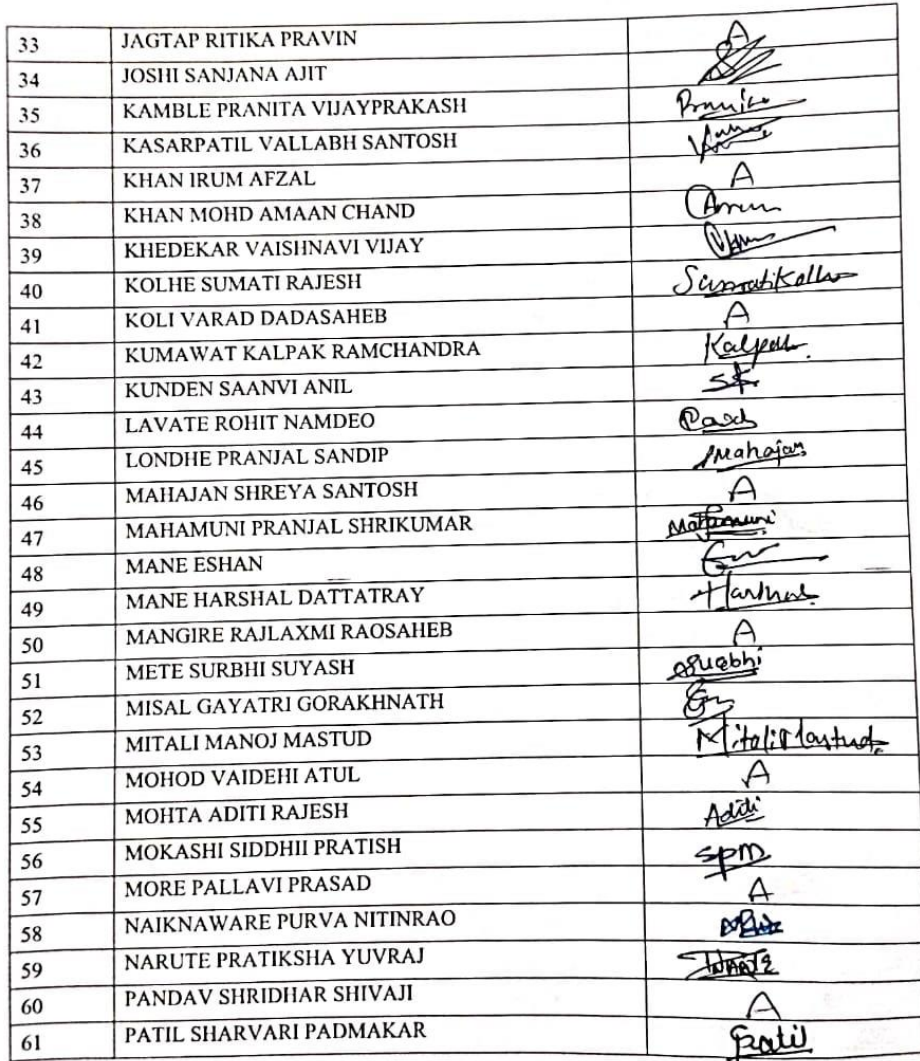 33 JAGTAP RITIKA PRAVIN A
34 JOSHI SANJANA AJIT
35 KAMBLE PRANITA VIJAYPRAKASH
36 KASARPATIL VALLABH SANTOSH
37 KHAN IRUM AFZAL A
38 KHAN MOHD AMAAN CHAND
39 KHEDEKAR VAISHNAVI VIJAY
40 KOLHE SUMATI RAJESH
41 KOLI VARAD DADASAHEB A
42 KUMAWAT KALPAK RAMCHANDRA
43 KUNDEN SAANVI ANIL SK
44 LAVATE ROHIT NAMDEO
45 LONDHE PRANJAL SANDIP
46 MAHAJAN SHREYA SANTOSH A
47 MAHAMUNI PRANJAL SHRIKUMAR
48 MANE ESHAN
49 MANE HARSHAL DATTATRAY Harshal
50 MANGIRE RAJLAXMI RAOSAHEB A
51 METE SURBHI SUYASH
52 MISAL GAYATRI GORAKHNATH
53 MITALI MANOJ MASTUD Mitali Mastud
54 MOHOD VAIDEHI ATUL A
55 MOHTA ADITI RAJESH Aditi
56 MOKASHI SIDDHII PRATISH SPM
57 MORE PALLAVI PRASAD A
58 NAIKNAWARE PURVA NITINRAO
59 NARUTE PRATIKSHA YUVRAJ
60 PANDAV SHRIDHAR SHIVAJI A
61 PATIL SHARVARI PADMAKAR